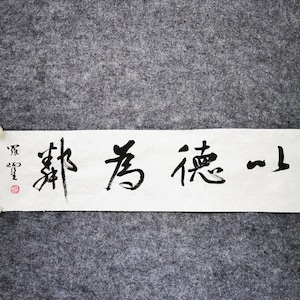 以德為鄰